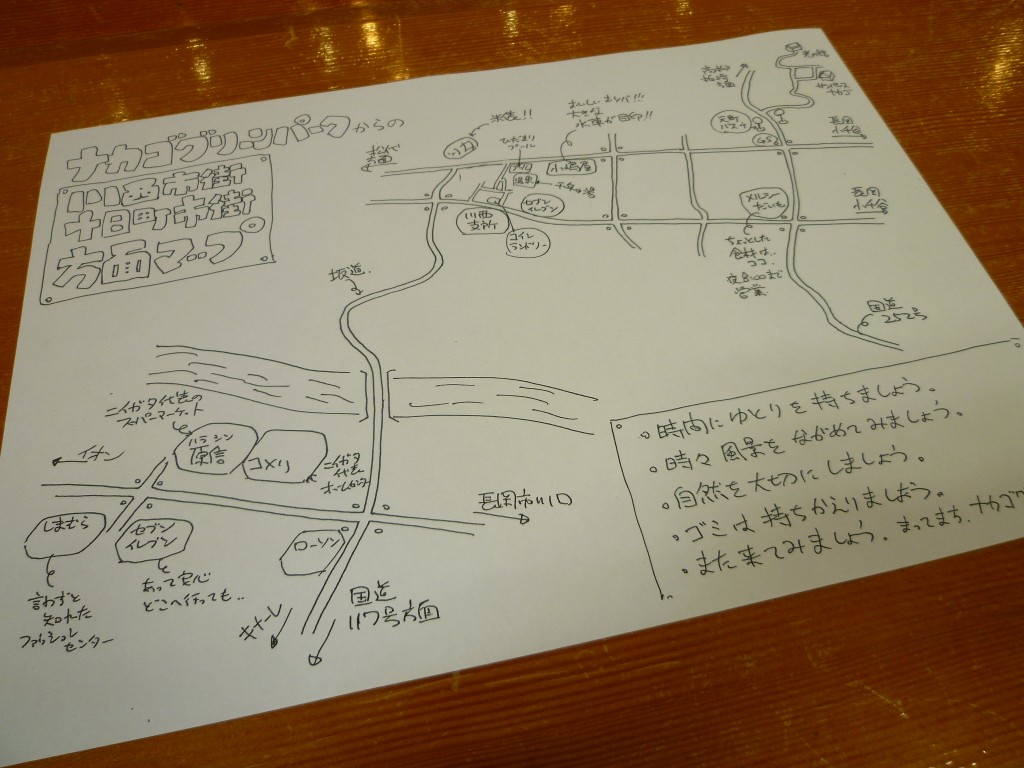 ナカゴグリーンパークからの
川西市街
十日町市街
方面マップ
松代
方面
米屋!!
ひだまり
プール
おいしいおソバ!!!
大きな
水車が目印!!
小嶋屋
温泉
千年の湯
川西
支所
セブン
イレブン
コイン
ランドリー
方面
GS
長岡
小千谷
メルシー
長岡
小千谷
ちょっとした
食材は..
ココ.
営業
国道
252号
坂道.
ニイガタ代表の
スーパーマーケット
ハラシン
原信
コメリ
ニイガタ
代表
ホームセンター
イオン
しまむら
セブン
イレブン
ローソン
長岡市川口
言わずと
知れた
ファッション
センター
あって安心
どこへ行っても..
キナーレ
国道
117号方面
。時間にゆとりを持ちましょう。
。時々風景をながめてみましょう。
。自然を大切のにしましょう。
。ゴミは持ちかえりましおう。
。また来てみましょう。まってまち、ナカゴグ